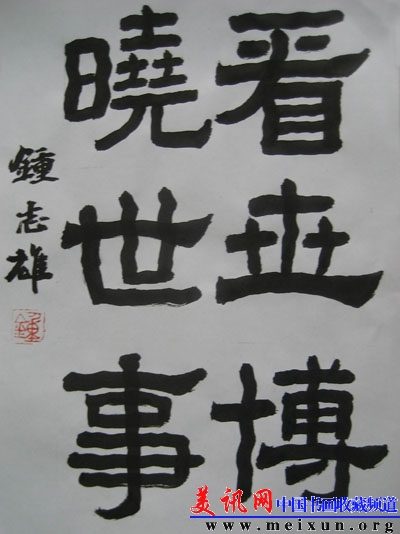 看世博
曉世事
鍾志雄
鍾
美讯网 中国书画收藏频道
www.meixun.org